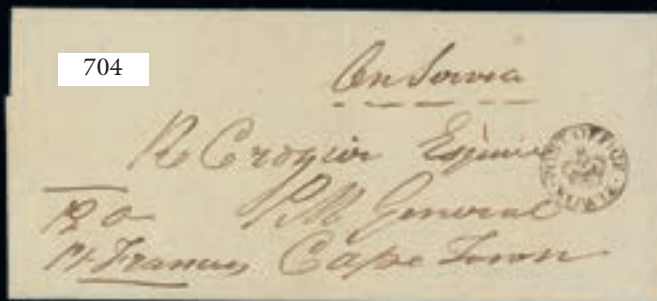 704
On Service
R Crozier Esquire
POST OFFICE
P.M. General
P O
Pt Francis
Cape Town